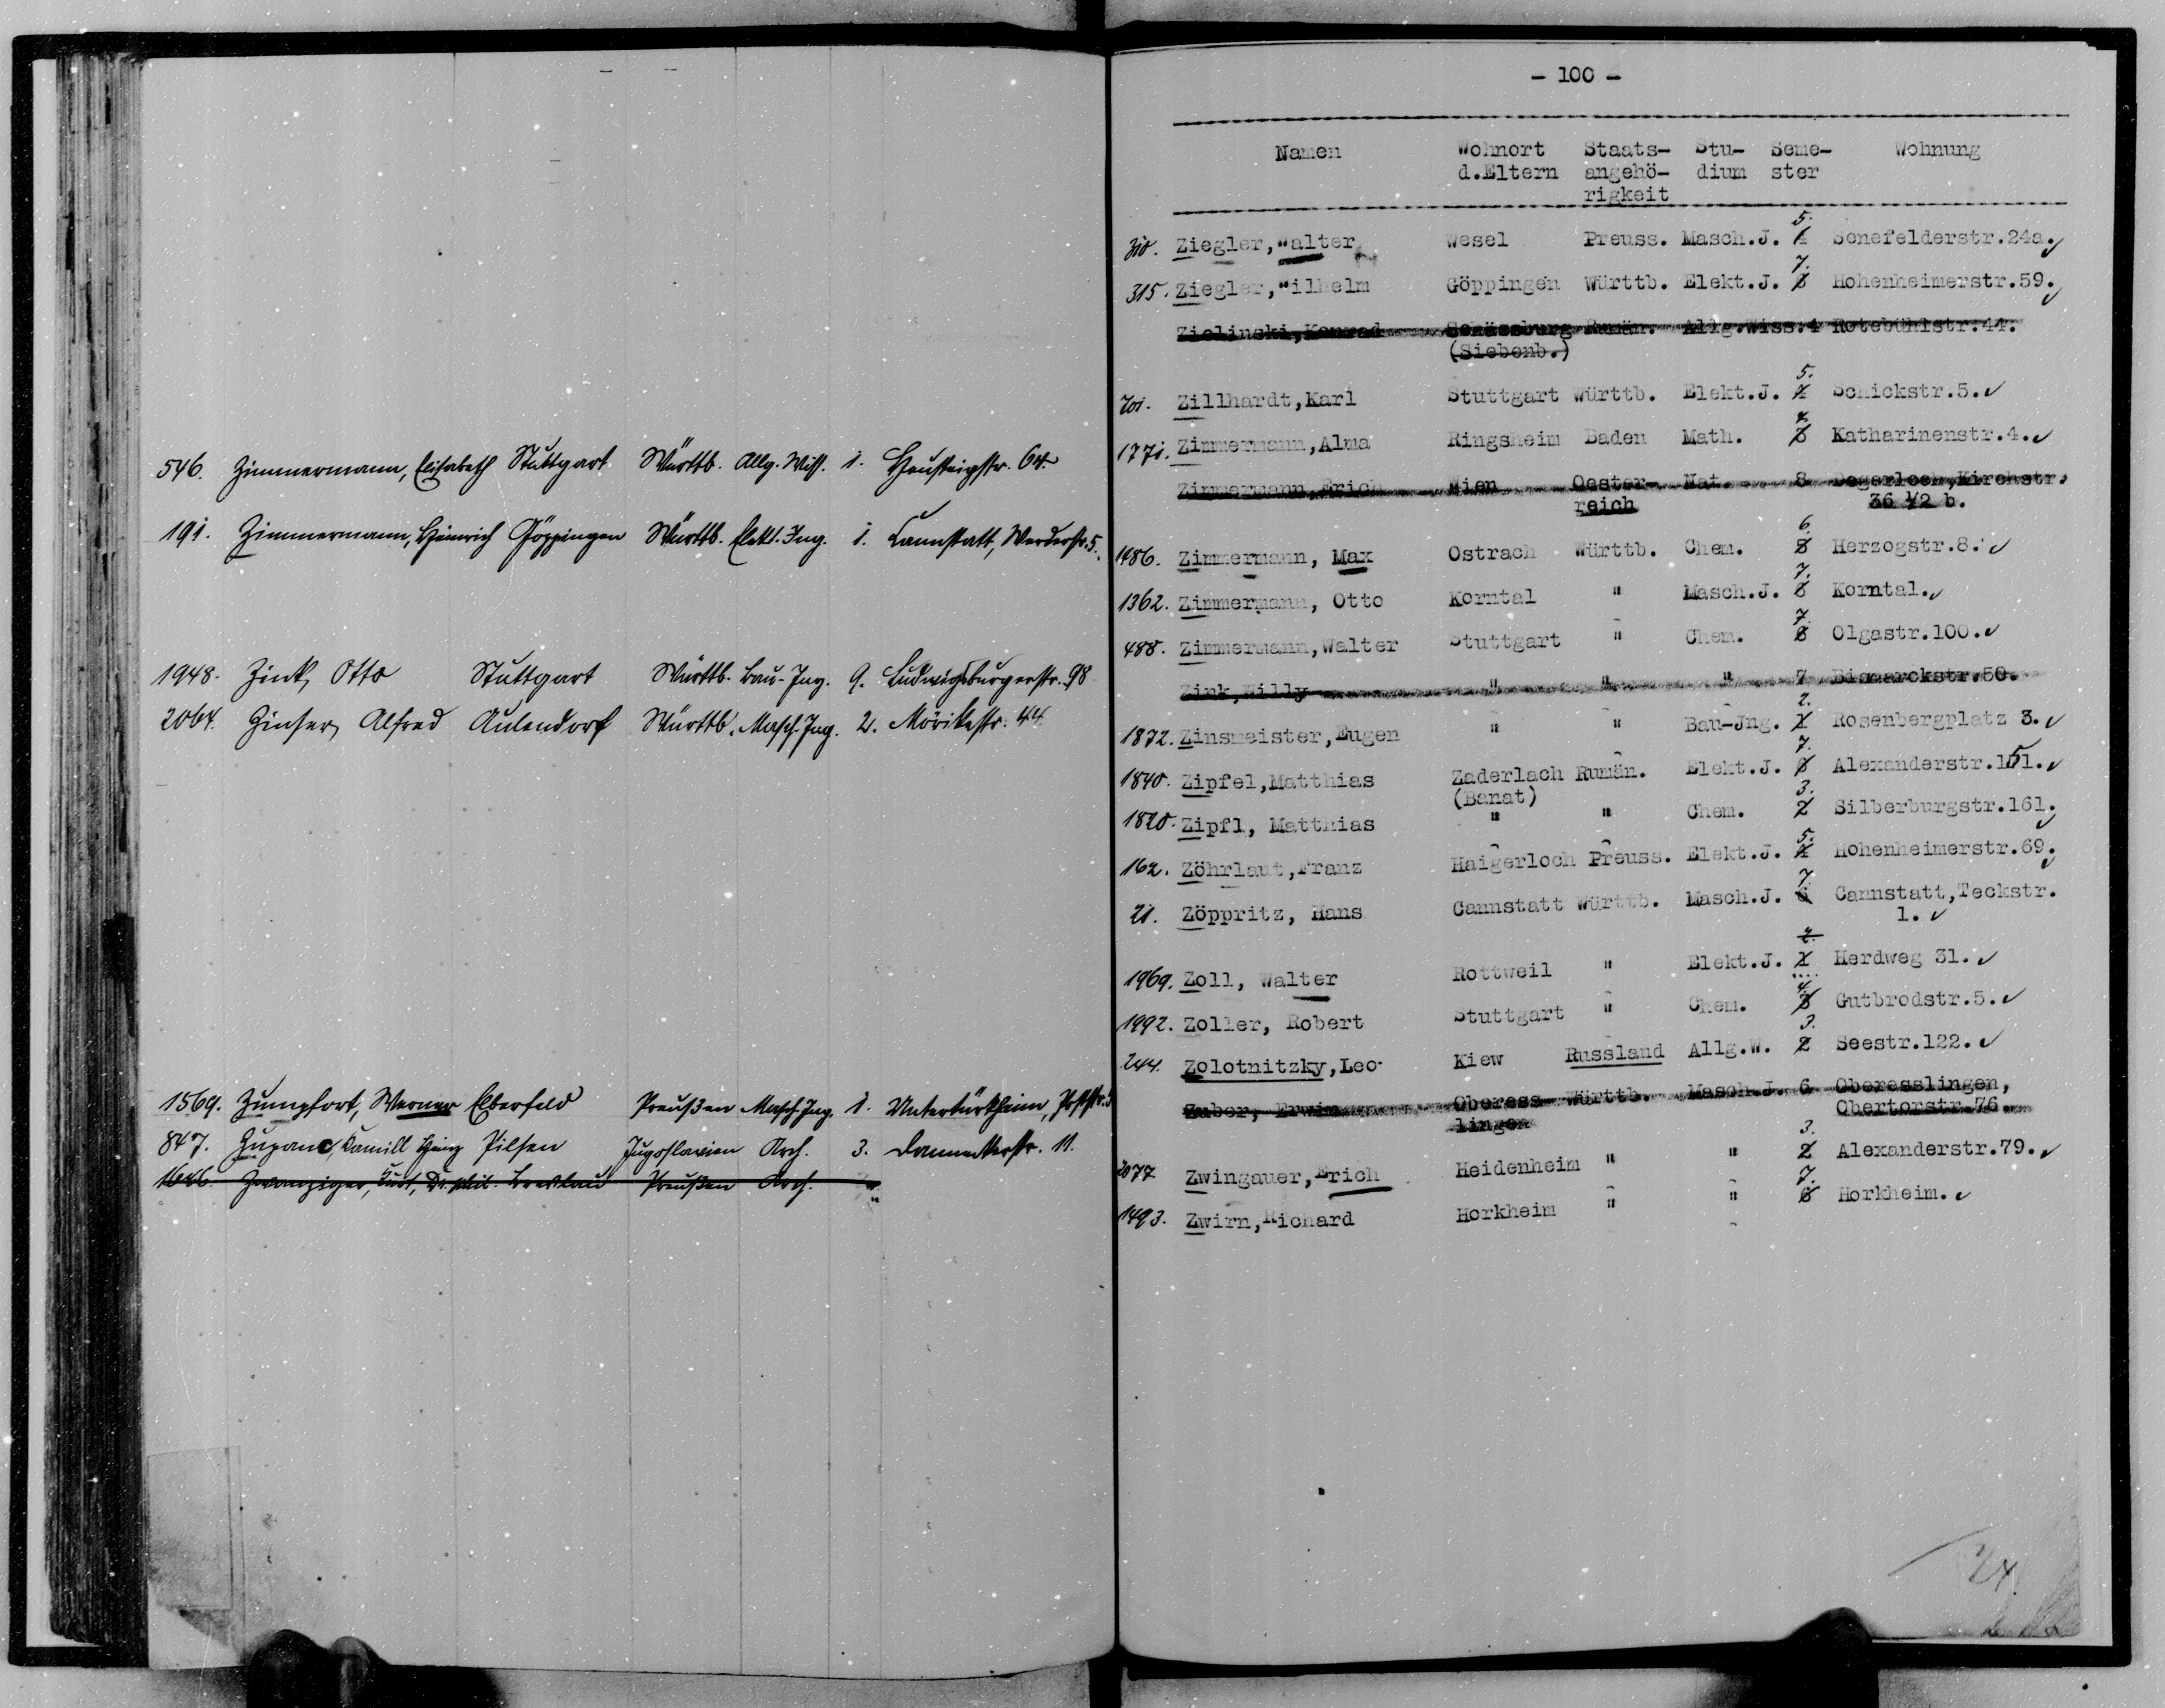 546. Zimmermann, Elisabeth Stuttgart Württb. Allg. Wiss. 1. Heusteigstr. 64.
191. Zimmermann, Heinrich Göppingen Württb. Elekt. Ing. 1. Cannstatt, Werderstr. 5.
1948. Zink, Otto Stuttgart Württb. Bau-Ing. 9. Ludwigsburgerstr. 98
2064. Zinser, Alfred Aulendorf Württb. Masch. Ing. 2. Mörikestr. 44
1569. Zumpfort, Werner Elberfeld Preußen Masch. Ing. 1. Untertürkheim,
847. Zupanc, Kamill Heinz Pilsen Jugoslavien Arch. 3. Danneckerstr. 11.
1646. Zwanziger, Kurt, Dr. phil. Breslau Preußen Arch.
- 100 -
Namen Wohnort Staats- Stu- Seme- Wohnung
d.Eltern angehö- dium ster
rigkeit
5.
310. Ziegler, Walter Wesel Preuss. Masch.J. 4 Senefelderstr.24a.
7.
315. Ziegler, Wilhelm Göppingen Württb. Elekt.J. 6 Hohenheimerstr.59.
Zielinski, Konrad Schässburg Rumän. Allg.Wiss.4 Rotebühlstr.44.
(Siebenb.)
5.
701. Zillhardt, Karl Stuttgart Württb. Elekt.J. 4 Schickstr.5.
4
1771. Zimmermann, Alma Ringsheim Baden Math. 3 Katharinenstr.4.
Zimmermann, Erich Wien Oester- Nat. 8 Degerloch, Kirchstr.
reich 36 1/2 b.
6.
1486. Zimmermann, Max Ostrach Württb. Chem. 5 Herzogstr.8.
7.
1362. Zimmermann, Otto Korntal " Masch.J. 6 Korntal.
7.
488. Zimmermann, Walter Stuttgart " Chem. 6 Olgastr.100.
Zink, Willy " " " 7 Bismarckstr.50.
2.
1872. Zinsmeister, Eugen " " Bau-Jng. 1 Rosenbergplatz 3.
7.
1840. Zipfel, Matthias Zaderlach Rumän. Elekt.J. 6 Alexanderstr.151.
(Banat)
3.
1820. Zipfl, Matthias " " Chem. 2 Silberburgstr.161.
5.
162. Zöhrlaut, Franz Haigerloch Preuss. Elekt.J. 4 Hohenheimerstr.69.
7.
21. Zöppritz, Hans Cannstatt Württb. Masch.J. 6 Cannstatt, Teckstr.
1.
2.
1969. Zoll, Walter Rottweil " Elekt.J. 1 Herdweg 31.
4.
1992. Zoller, Robert Stuttgart " Chem. 3 Gutbrodstr.5.
3.
244. Zolotnitzky, Leo Kiew Russland Allg.W. 2 Seestr.122.
Zuber, Erwin Oberess- Württb. Masch.J. 6 Oberesslingen,
lingen Obertorstr.76
3.
2077 Zwingauer, Erich Heidenheim " " 2 Alexanderstr.79.
7.
1493. Zwirn, Richard Horkheim " " 6 Horkheim.
24.